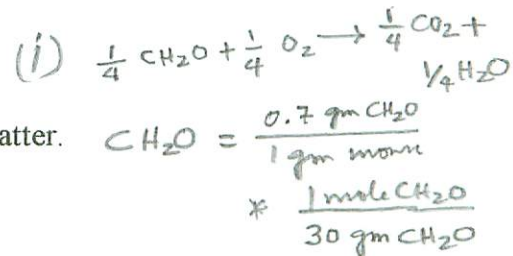 (i) 1/4 CH2O + 1/4 O2 → 1/4 CO2 +
1/4 H2O
atter. CH2O = 0.7 gm CH2O / 1 gm mouse
* 1 mole CH2O / 30 gm CH2O